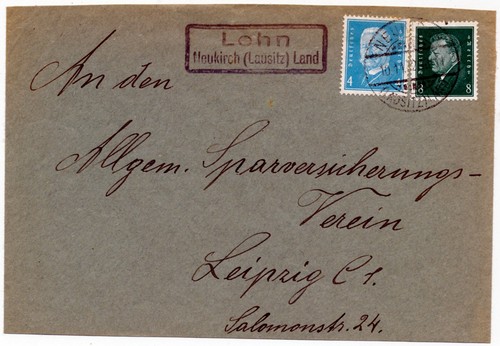 Lohn
Neukirch (Lausitz) Land
4
Deutsches Reich
8
Deutsches Reich
An den
Allgem. Sparversicherungs-
Verein
Leipzig C 1.
Salomonstr. 24.